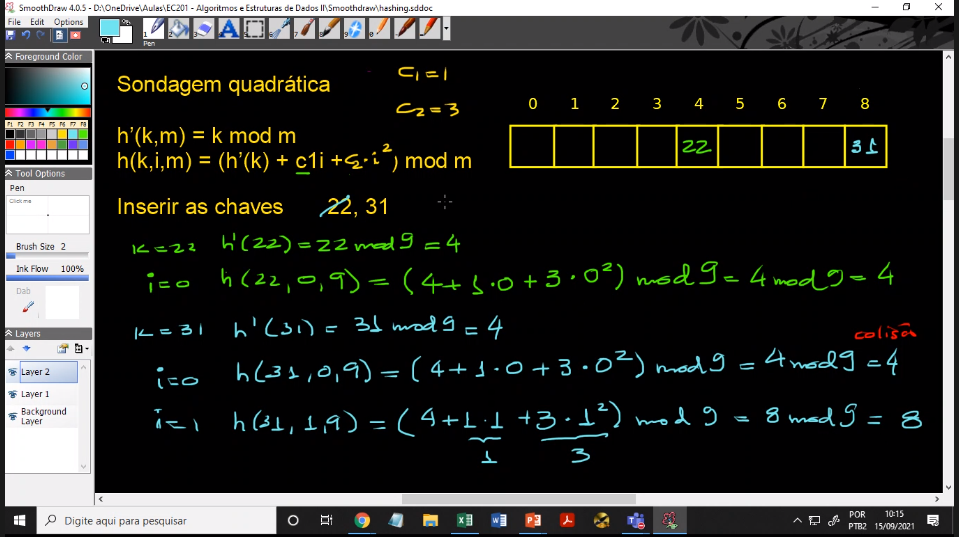 SmoothDraw 4.0.5 - D:\OneDrive\Aulas\EC201 - Algoritmos e Estruturas de Dados II\Smoothdraw\hashing.sddoc
File Edit Options
Pen
1 2 3 4 5 6 7 8 9 0
Foreground Color
F1 F2 F3 F4 F5 F6 F7 F8
Tool Options
Pen
Click me
Brush Size 2
Ink Flow 100%
Dab
Layers
Layer 2
Layer 1
Background Layer
Sondagem quadrática
C1 = 1
C2 = 3
h'(k,m) = k mod m
h(k,i,m) = (h'(k) + c1i + C2·i²) mod m
0 1 2 3 4 5 6 7 8
22 31
Inserir as chaves 22, 31
K=22 h'(22) = 22 mod 9 = 4
i=0 h(22,0,9) = (4+1·0+3·0²) mod 9 = 4 mod 9 = 4
K=31 h'(31) = 31 mod 9 = 4
colisão
i=0 h(31,0,9) = (4+1·0+3·0²) mod 9 = 4 mod 9 = 4
i=1 h(31,1,9) = (4+1·1+3·1²) mod 9 = 8 mod 9 = 8
1 3
Digite aqui para pesquisar
POR
PTB2
10:15
15/09/2021